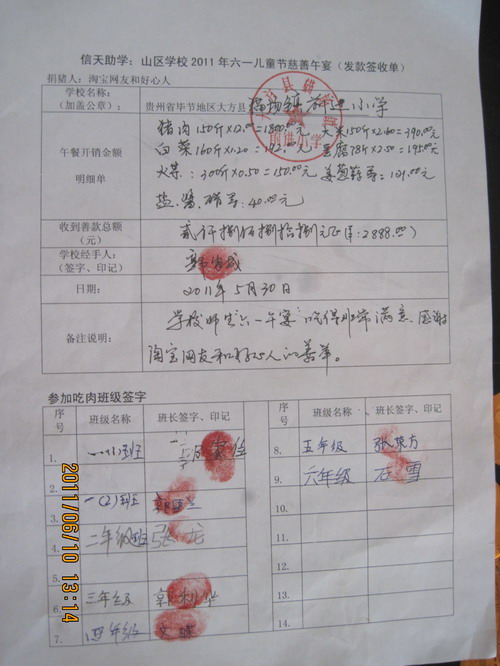 信天助学：山区学校2011年六一儿童节慈善午宴（发款签收单）
捐猪人：淘宝网友和好心人
学校名称：
（加盖公章）：
贵州省毕节地区大方县 前进小学
午餐开销金额
明细单
猪肉150斤X12.00=1800.00元 大米150斤X2.60=390.00元
白菜160斤X1.20=192.00元 豆腐78斤X2.50=195.00元
火葱：300斤X0.50=150.00元 姜葱蒜等：121.00元
盐、酱、醋等：40.00元
收到善款总额
（元）
贰仟捌佰捌拾捌元正（2888.00）
学校经手人：
（签字、印记）
日期：
2011年5月30日
备注说明：
学校师生六一午宴吃得非常满意，感谢
淘宝网友和好心人的善举。
参加吃肉班级签字
序号 班级名称 班长签字、印记 序号 班级名称 班长签字、印记
1. 一（1）班
2.
3. 一（2）班
4. 二年级班 张龙
5.
6. 三年级 郭利华
7. 四年级
8. 五年级 张东方
9. 六年级 石雪
10.
11.
12.
13.
14.
2011/06/10 13:14